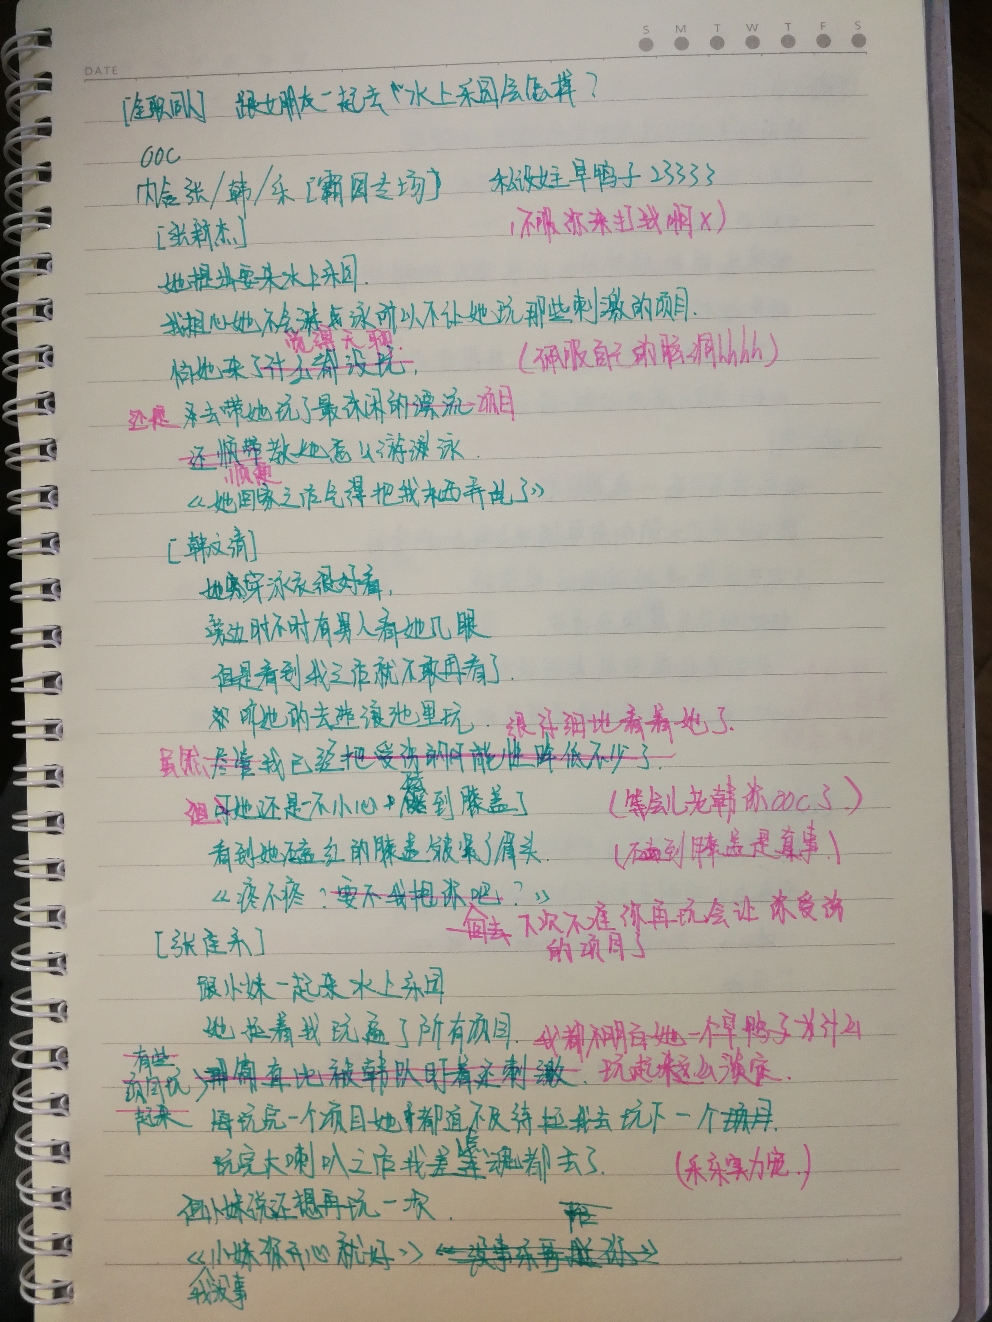 S M T W T F S
DATE
[全职同人] 跟女朋友一起去“水上乐园会怎样?
OOC
内含张/韩/乐[霸图专场] 私设女主旱鸭子23333
(不服你来打我啊x)
[张新杰]
她提出要来水上乐园.
我担心她不会游泳所以不让她玩那些刺激的项目.
觉得无聊
怕她来了什么都没玩, (佩服自己的脑洞hhhh)
还是 去带她玩了最休闲的漂流项目
还顺带教她怎么游泳.
顺便
《她回家之后气得把我东西弄乱了》
[韩文清]
她穿泳衣很好看,
旁边时不时有男人看她几眼
但是看到我之后就不敢再看了.
都听她的去造浪池里玩. 很仔细地看着她了.
虽然 尽管我已经把受伤的可能性降低不少了.
但 可她还是一不小心碰到膝盖了 (等会儿老韩你OOC了.)
看到她磕红的膝盖皱紧了眉头. (不磕到膝盖是真事.)
《疼不疼?要不我抱你吧.?》
回去 下次不准你再玩会让你受伤
的项目了
[张佳乐]
跟小妹一起来水上乐园
她拉着我玩遍了所有项目. 我都不明白她一个旱鸭子为什么
有些项目玩起来 那简直比被韩队盯着还刺激. 玩起来这么淡定.
每玩完一个项目她都迫不及待拉我去玩下一个项目.
玩完大喇叭之后我差点魂都去了. (乐乐实力宠.)
但小妹说还想再玩一次.
《小妹你开心就好》
我没事